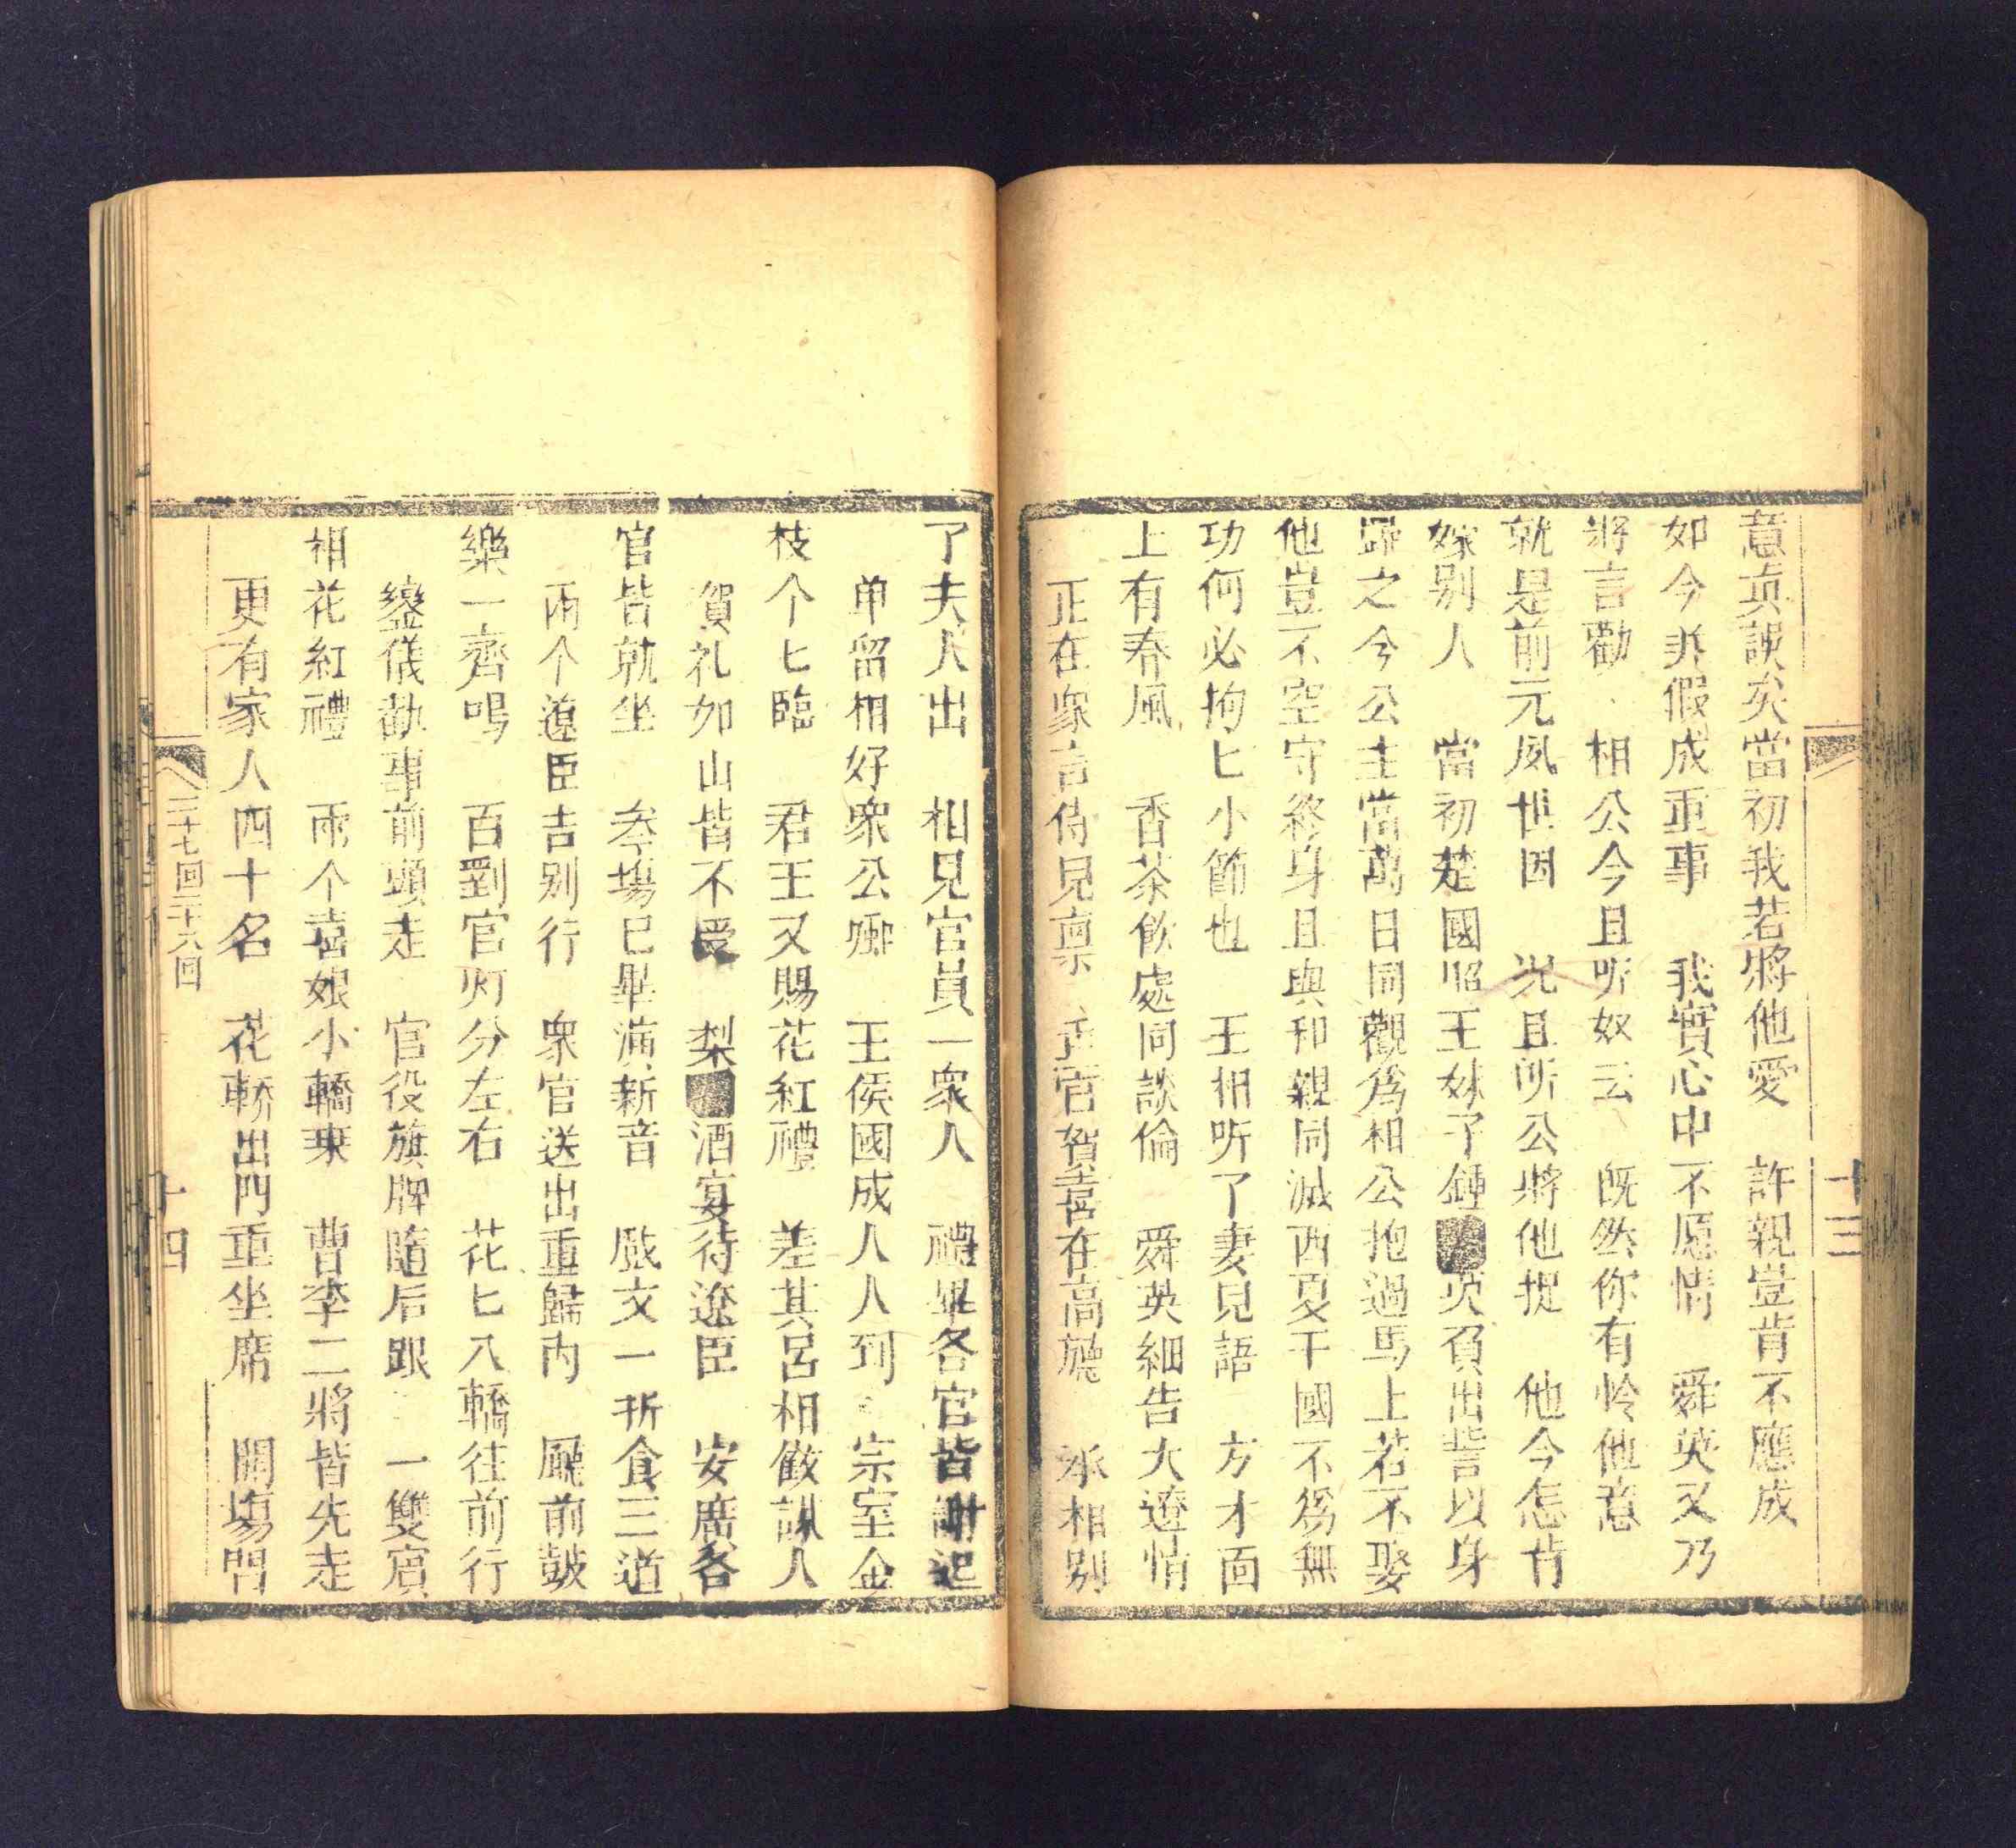 意真誤矣當初我若將他愛　許親豈肯不應成
如今弄假成重事　我實心中不愿情　舜英又乃
將言勸　相公今且听奴云　既然你有怜他意
就是前元夙世因　况且所公將他捉　他今怎肯
嫁别人　當初楚國昭王妹予鍾負出誓以身
歸之今公主當萬日同觀爲相公抱過馬上若不娶
他豈不空守終身且與和親同滅西夏干國不爲無
功何必拘匕小節也　王相听了妻兒語　方才面
上有春風　香茶飲處同談倫　舜英細告大遼情
正在衆言侍兒禀　壬官賀喜在高廳　承相别
了夫人出　相見官員一衆人　禮畢各官皆謝起
单留相好衆公卿　王侯國成人人到　宗室金
枝个匕臨　君王又賜花紅禮　差其呂相做謀人
賀礼如山皆不受　梨酒宴待遼臣　安廣各
官皆就坐　叅塲已畢演新音　戲文一折食三道
兩个遼臣吉别行　衆官送出重歸内　廳前鼓
樂一齊鳴　百對官灯分左右　花匕八轎往前行
鑾儀執事前頭走　官役旗牌隨后跟　一雙賔
相花紅禮　兩个喜娘小轎乘　曹李二將皆先走
更有家人四十名　花轎出門重坐席　開塲閂
十三
二十七回二十八回
十四